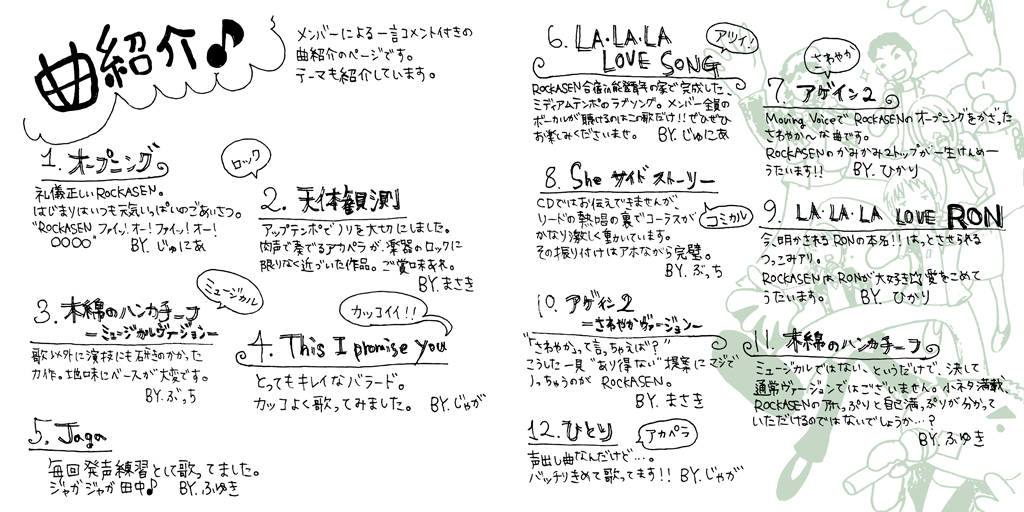 曲紹介♪
メンバーによる一言コメント付きの
曲紹介のページです。
テーマも紹介しています。
1. オープニング
礼儀正しいROCKASEN。
はじまりはいつも元気いっぱいのごあいさつ。
"ROCKASEN ファイッ!オー!ファイッ!オー!
○○○○"　BY.じゅにあ
ロック
2. 天体観測
アップテンポでノリを大切にしました。
肉声で奏でるアカペラが、楽器のロックに
限りなく近づいた作品。ご賞味あれ。
BY.まさき
ミュージカル
3. 木綿のハンカチーフ
－ミュージカルヴァージョン－
歌以外に演技にも磨きのかかった
力作。地味にベースが大変です。
BY.ぶっち
カッコイイ!!
4. This I promise you
とってもキレイなバラード。
カッコよく歌ってみました。 BY.じゃが
5. Jaga
毎回発声練習として歌ってました。
ジャガジャガ田中♪ BY.ふゆき
6. LA・LA・LA
LOVE SONG
アツイ!
ROCKASEN合宿in能登青年の家で完成した、
ミディアムテンポのラブソング。メンバー全員の
ボーカルが聴けるのはこの歌だけ!!ぜひぜひ
お楽しみくださいませ。 BY.じゅにあ
さわやか
7. アゲイン2
Moving VoiceでROCKASENのオープニングをかざった
さわやか〜な曲です。
ROCKASENのかみかみ2トップが一生けんめー
うたいます!! BY.ひかり
8. She サイド ストーリー
コミカル
CDではお伝えできませんが、
リードの熱唱の裏でコーラスが
かなり激しく動いています。
その振り付けはアホながら完璧。
BY.ぶっち
9. LA・LA・LA LOVE RON
今、明かされるRONの本名!!はっとさせられる
つっこみアリ。
ROCKASENはRONが大好き☆愛をこめて
うたいます。 BY.ひかり
10. アゲイン2
＝さわやかヴァージョン＝
"「さわやか」って言っちゃえば?"
こうした一見"あり得ない"提案にマジで
のっちゃうのが ROCKASEN。
BY.まさき
11. 木綿のハンカチーフ
ミュージカルではない、というだけで、決して
通常ヴァージョンではございません。小ネタ満載、
ROCKASENのアホっぷりと自己満っぷりが分かって
いただけるのではないでしょうか…?
BY.ふゆき
12. ひとり
アカペラ
声出し曲なんだけど…。
バッチリきめて歌ってます!! BY.じゃが